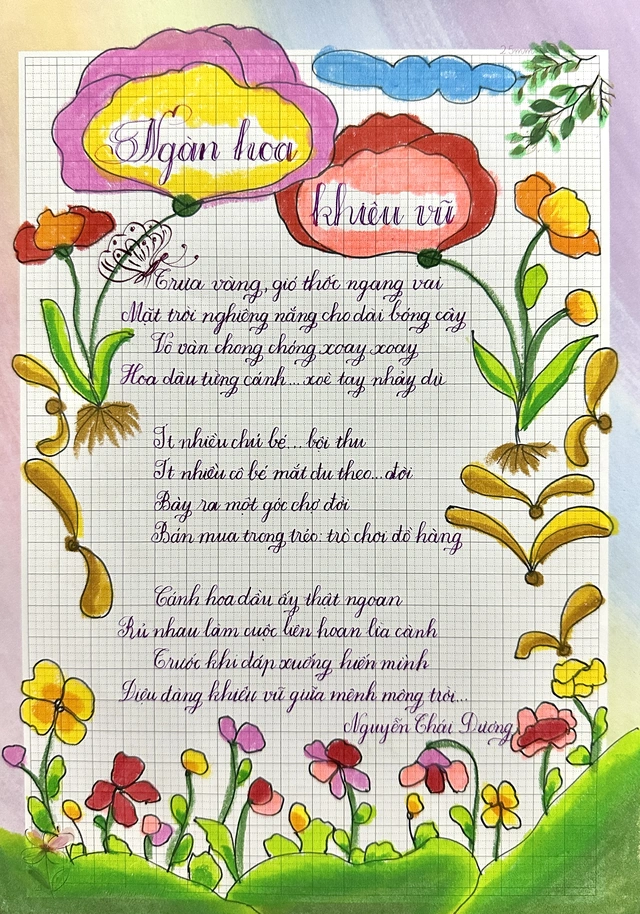 Ngàn hoa
khiêu vũ
Trưa vàng, gió thốc ngang vai
Mặt trời nghiêng nắng cho dài bóng cây
Vô vàn chong chóng xoay xoay
Hoa dầu từng cánh...xoè tay nhảy dù
Ít nhiều chú bé...bội thu
Ít nhiều cô bé mắt du theo...dòi
Bày ra một góc chợ đời
Bán mua trong trẻo: trò chơi đồ hàng
Cánh hoa dầu ấy thật ngoan
Rủ nhau làm cuộc liên hoan lìa cành
Trước khi đáp xuống hiến mình
Diêu dàng khiêu vũ giữa mênh mông trời...
Nguyễn Thái Dương